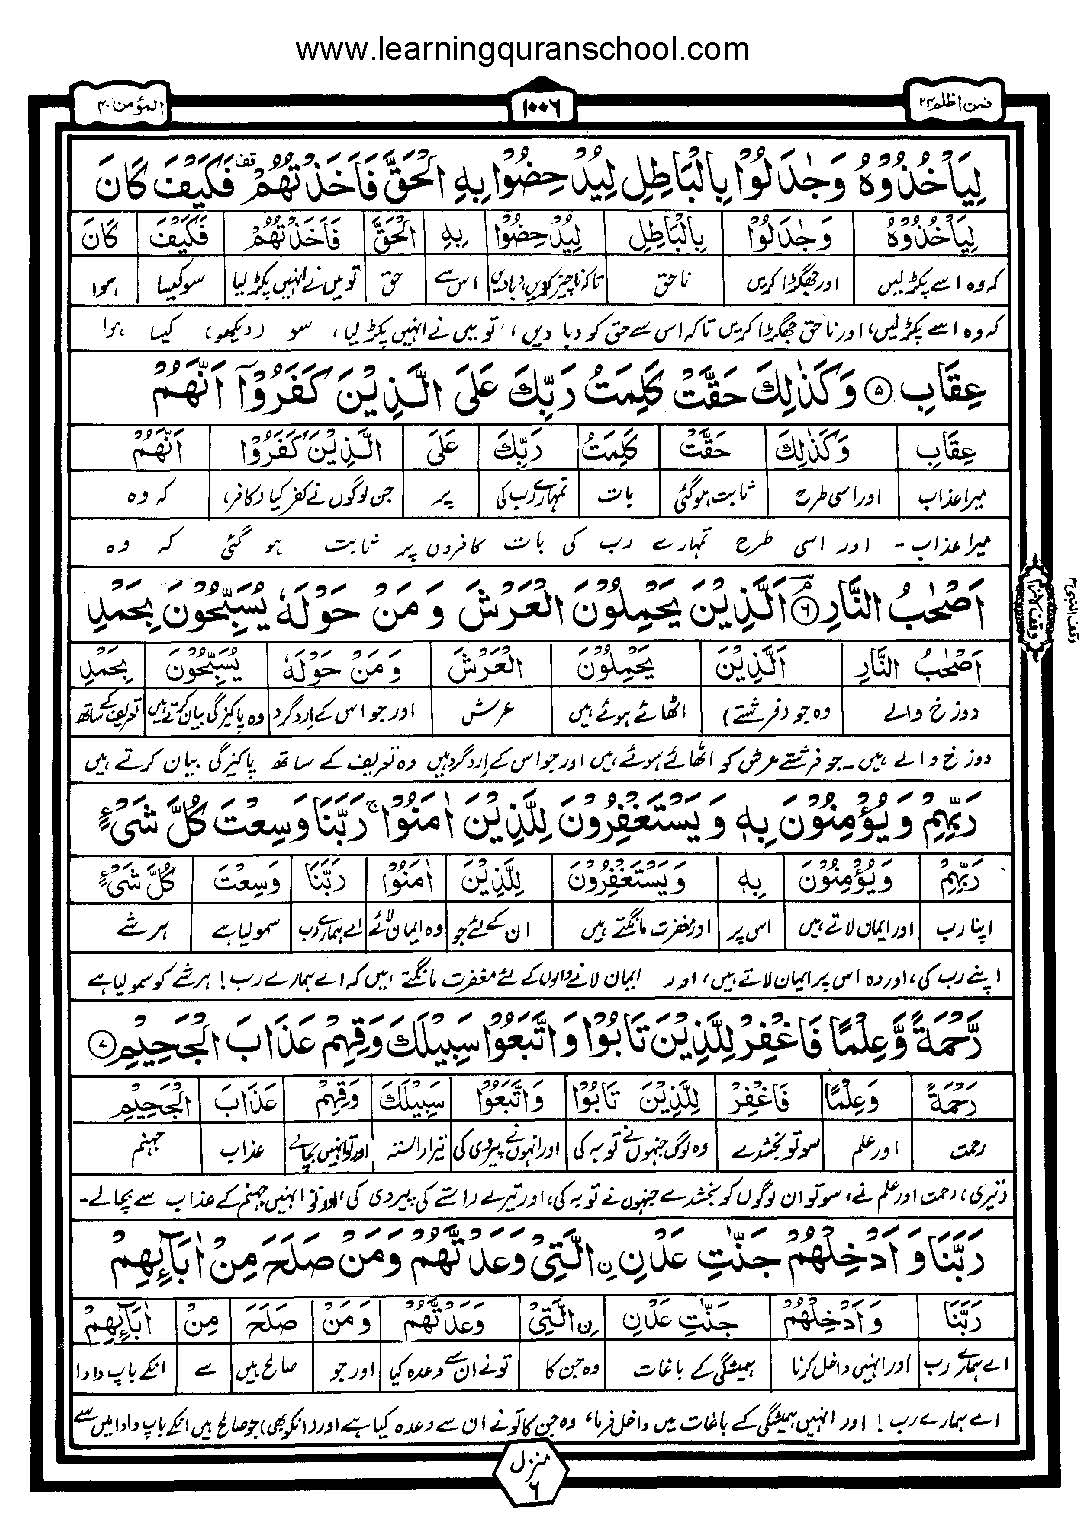 www.learningquranschool.com
المؤمن ۴۰
۱۰۰۶
فمن اظلم ۲۴
لِيَاۡخُذُوۡهُ وَجٰدَلُوۡا بِالۡبَاطِلِ لِيُدۡحِضُوۡا بِهِ الۡحَقَّ فَاَخَذۡتُهُمۡ قف فَكَيۡفَ كَانَ
لِيَاۡخُذُوۡهُ وَجٰدَلُوۡا بِالۡبَاطِلِ لِيُدۡحِضُوۡا بِهِ الۡحَقَّ فَاَخَذۡتُهُمۡ فَكَيۡفَ كَانَ
کہ وہ اسے پکڑ لیں اور جھگڑا کریں ناحق تاکہ ناچیز کردیں (دبا دیں) اس سے حق تو میں نے انہیں پکڑ لیا سو کیسا ہوا
کہ وہ اسے پکڑ لیں، اور ناحق جھگڑا کریں تاکہ اس سے حق کو دبا دیں، تو میں نے انہیں پکڑ لیا، سو (دیکھو) کیسا ہوا
عِقَابِ ۵ وَكَذٰلِكَ حَقَّتۡ كَلِمَتُ رَبِّكَ عَلَى الَّذِيۡنَ كَفَرُوۡۤا اَنَّهُمۡ
عِقَابِ وَكَذٰلِكَ حَقَّتۡ كَلِمَتُ رَبِّكَ عَلَى الَّذِيۡنَ كَفَرُوۡۤا اَنَّهُمۡ
میرا عذاب اور اسی طرح ثابت ہوگئی بات تمہارے رب کی پر جن لوگوں نے کفر کیا (کافر) کہ وہ
میرا عذاب - اور اسی طرح تمہارے رب کی بات کافروں پر ثابت ہو گئی کہ وہ
اَصۡحٰبُ النَّارِ ۶ م اَلَّذِيۡنَ يَحۡمِلُوۡنَ الۡعَرۡشَ وَمَنۡ حَوۡلَهٗ يُسَبِّحُوۡنَ بِحَمۡدِ
اَصۡحٰبُ النَّارِ اَلَّذِيۡنَ يَحۡمِلُوۡنَ الۡعَرۡشَ وَمَنۡ حَوۡلَهٗ يُسَبِّحُوۡنَ بِحَمۡدِ
دوزخ والے وہ جو (فرشتے) اٹھائے ہوئے ہیں عرش اور جو اس کے اردگرد وہ پاکیزگی بیان کرتے ہیں تعریف کے ساتھ
دوزخ والے ہیں - جو فرشتے عرش کو اٹھائے ہوئے ہیں اور جو اس کے اردگرد ہیں وہ تعریف کے ساتھ پاکیزگی بیان کرتے ہیں
رَبِّهِمۡ وَيُؤۡمِنُوۡنَ بِهٖ وَيَسۡتَغۡفِرُوۡنَ لِلَّذِيۡنَ اٰمَنُوۡا ۚ رَبَّنَا وَسِعۡتَ كُلَّ شَىۡءٍ
رَبِّهِمۡ وَيُؤۡمِنُوۡنَ بِهٖ وَيَسۡتَغۡفِرُوۡنَ لِلَّذِيۡنَ اٰمَنُوۡا رَبَّنَا وَسِعۡتَ كُلَّ شَىۡءٍ
اپنا رب اور ایمان لاتے ہیں اس پر اور مغفرت مانگتے ہیں ان کے لئے جو وہ ایمان لائے اے ہمارے رب سمو لیا ہے ہر شے
اپنے رب کی، اور وہ اس پر ایمان لاتے ہیں، اور ایمان لانے والوں کے لئے مغفرت مانگتے ہیں کہ اے ہمارے رب! ہر شے کو سمو لیا ہے
رَّحۡمَةً وَّعِلۡمًا فَاغۡفِرۡ لِلَّذِيۡنَ تَابُوۡا وَاتَّبَعُوۡا سَبِيۡلَكَ وَقِهِمۡ عَذَابَ الۡجَحِيۡمِ ۷
رَحۡمَةً وَعِلۡمًا فَاغۡفِرۡ لِلَّذِيۡنَ تَابُوۡا وَاتَّبَعُوۡا سَبِيۡلَكَ وَقِهِمۡ عَذَابَ الۡجَحِيۡمِ
رحمت اور علم سو تو بخشدے وہ لوگ جنہوں نے توبہ کی اور انہوں نے پیروی کی تیرا راستہ اور تو انہیں بچالے عذاب جہنم
(تیری) رحمت اور علم نے، سو تو ان لوگوں کو بخشدے جنہوں نے توبہ کی، اور تیرے راستے کی پیروی کی اور تو انہیں جہنم کے عذاب سے بچالے -
رَبَّنَا وَاَدۡخِلۡهُمۡ جَنّٰتِ عَدۡنِ ۨ الَّتِىۡ وَعَدۡتَّهُمۡ وَمَنۡ صَلَحَ مِنۡ اٰبَآئِهِمۡ
رَبَّنَا وَاَدۡخِلۡهُمۡ جَنّٰتِ عَدۡنِ ۨ الَّتِىۡ وَعَدۡتَّهُمۡ وَمَنۡ صَلَحَ مِنۡ اٰبَآئِهِمۡ
اے ہمارے رب اور انہیں داخل کرنا ہمیشگی کے باغات وہ جن کا تونے ان سے وعدہ کیا اور جو صالح ہیں سے انکے باپ دادا
اے ہمارے رب! اور انہیں ہمیشگی کے باغات میں داخل فرما وہ جن کا تونے ان سے وعدہ کیا ہے اور (انکو بھی) جو صالح ہیں انکے باپ دادا میں سے
منزل ۶